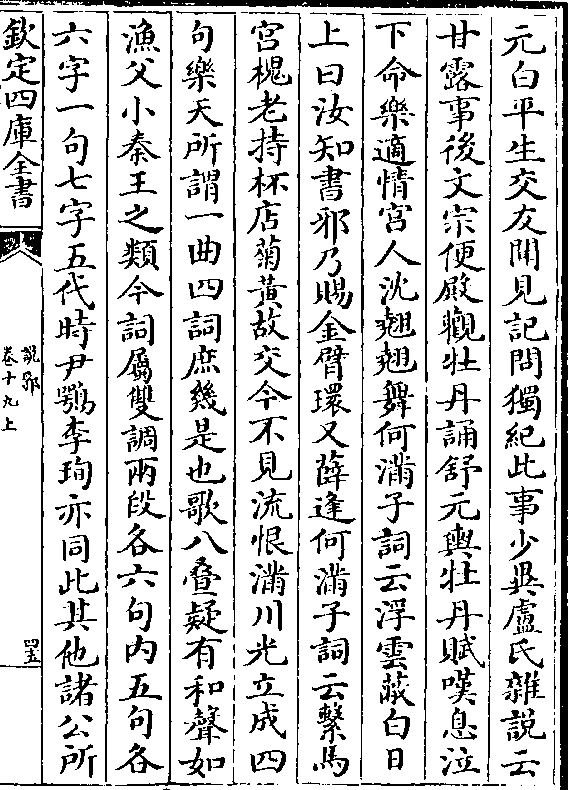 元白平生交友聞見記問獨紀此事少異盧氏雜説云
甘露事後文宗便殿觀牡丹誦舒元輿牡丹賦嘆息泣
下命樂適情宮人沈翹翹舞何滿子詞云浮雲蔽白日
上曰汝知書邪乃賜金臂環又薛逢何滿子詞云繫馬
宮槐老持杯店菊黃故交今不見流恨滿川光立成四
句樂天所謂一曲四詞庶幾是也歌八疊疑有和聲如
漁父小秦王之類今詞屬雙調兩段各六句内五句各
六字一句七字五代時尹鶚李珣亦同此其他諸公所
欽定四庫全書
說郛
卷十九上